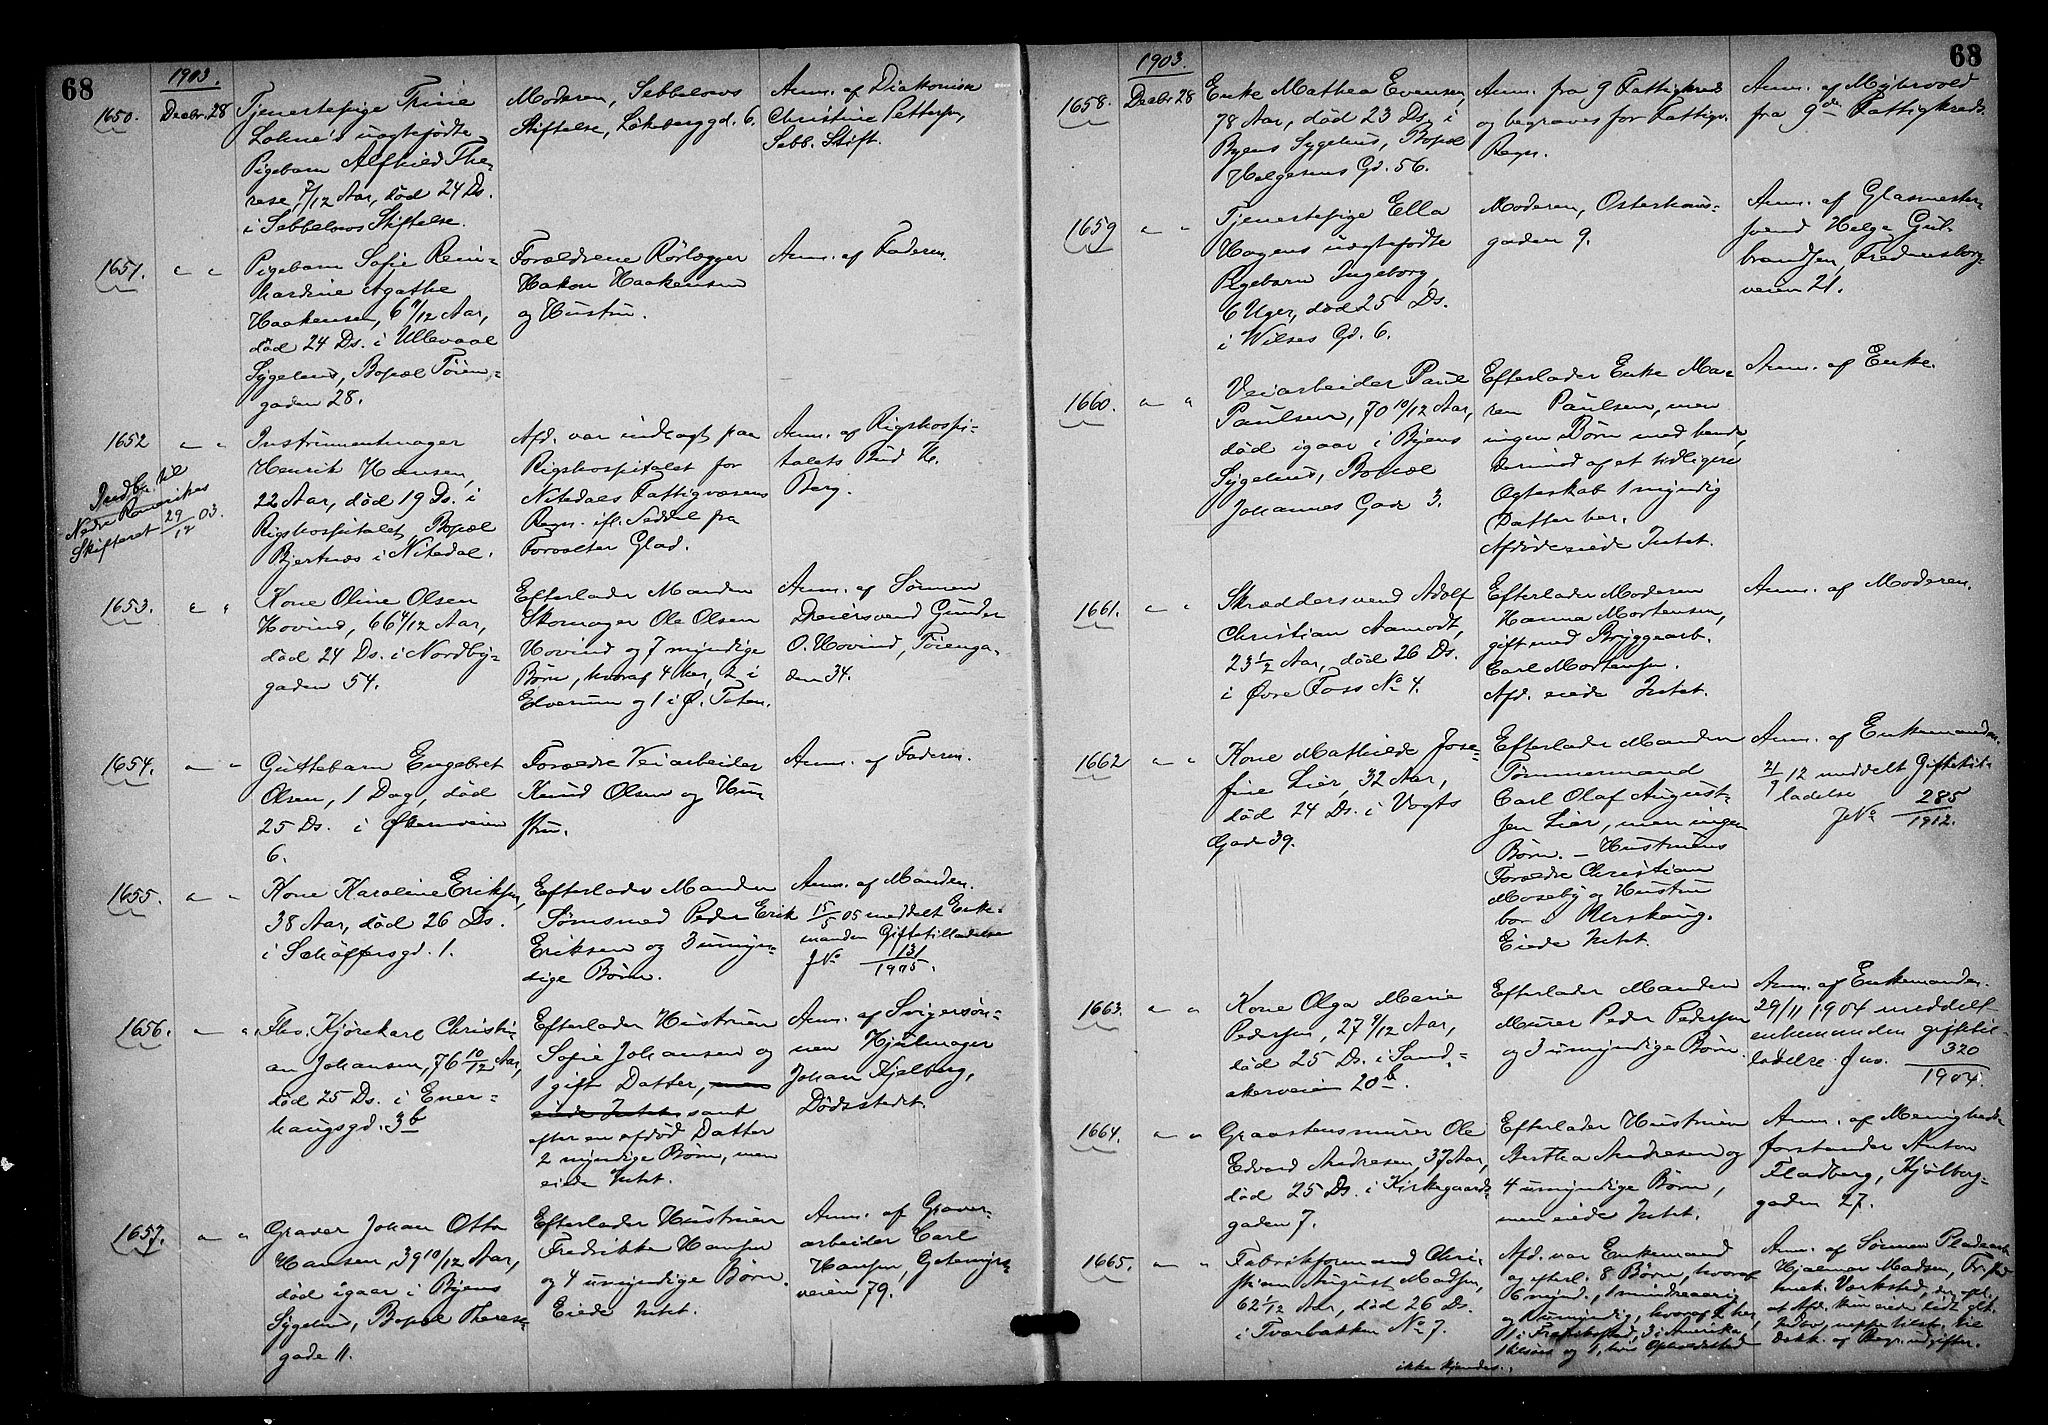 68
1903.
1650.
Decbr. 28
Tjenestepige Trine
Lohne's uægtefødte
Pigebarn Alfhild The-
rese, 7/12 Aar, død 24 Ds.
i Sebbelows Stiftelse.
Moderen, Sebbelows
Stiftelse, Løkeberggd. 6.
Anm. af Diakonisse
Christine Pettersen,
Sebb. Stift.
1651.
" "
Pigebarn Sofie Rein-
hardine Agathe
Haakensen, 6 11/12 Aar,
død 24 Ds. i Ullevaal
Sygehus, Bopæl Tøien-
gaden 28.
Forældrene Rørlægger
Hakon Haakensen
og Hustru.
Anm. af Faderen.
1652
" "
Indb. til
Nedre Romerikes
Skifteret 29/12 03.
Instrumentmager
Henrik Hansen,
22 Aar, død 19 Ds. i
Rigshospitalet, Bopæl
Bjertnæs i Nitedal.
Afd. var indlagt paa
Rigshospitalet for
Nitedals Fattigvæsens
Regn. ifl. Seddel fra
Forvalter Glad.
Anm. af Rigshospi-
talets Bud H.
Berg.
1653.
" "
Kone Oline Olsen
Hovind, 66 4/12 Aar,
død 24 Ds. i Nordby-
gaden 54.
Efterlader Manden
Skomager Ole Olsen
Hovind og 7 myndige
Børn, hvoraf 4 her, 2 i
Elverum og 1 i Ø. Toten.
Anm. af Sønnen
Dreiersvend Gunder
O. Hovind, Tøienga-
den 34.
1654.
" "
Guttebarn Engebret
Olsen, 1 Dag, død
25 Ds. i Økernveien
6.
Forældre Veiarbeider
Knud Olsen og Hu-
stru.
Anm. af Faderen.
1655.
" "
Kone Karoline Eriksen,
38 Aar, død 26 Ds.
i Schäffersgd. 1.
Efterlader Manden
Sømsmed Peder Erik
Eriksen og 3 umyn-
dige Børn.
Anm. af Manden.
15/5 05 meddelt Enke-
manden Giftetilladelse
J No 1131/1905.
1656.
" "
Fhv. Kjørekarl Christi-
an Johansen, 76 10/12 Aar,
død 25 Ds. i Ener-
haugsgd. 3b
Efterlader Hustruen
Sofie Johansen og
1 gift Datter, men
eiede Intet samt
efter en afdød Datter
2 myndige Børn, men
eiede Intet.
Anm. af Svigersøn-
nen Hjulmager
Johan Kjelberg,
Dødsstedet.
1657.
" "
Graver Johan Otto
Hansen, 39 10/12 Aar,
død igaar i Byens
Sygehus, Bopæl Therese-
gade 11.
Efterlader Hustruen
Fredrikke Hansen
og 4 umyndige Børn.
Eiede Intet.
Anm. af Graver-
arbeider Carl
Hansen, Geitemyrs-
veien 79.
68
1903.
1658.
Decbr 28
Enke Mathea Evensen,
78 Aar, død 23 Ds. i
Byens Sygehus, Bopæl
Helgesens Gd. 56.
Anm. fra 9 Fattigkreds
og begraves for Fattigv.
Regn.
Anm. af Myhrvold
fra 9de Fattigkreds.
1659
" "
Tjenestepige Ella
Hagens uægtefødte
Pigebarn Ingeborg,
6 Uger, død 25 Ds.
i Wilses Gd. 6.
Moderen, Osterhaus-
gaden 9.
Anm. af Glasmester-
svend Helge Gul-
brandsen, Fredensborg-
veien 21.
1660.
" "
Veiarbeider Paul
Paulsen, 70 10/12 Aar,
død igaar i Byens
Sygehus, Bopæl
Johannes Gade 3.
Efterlader Enke Ma-
ren Paulsen, men
ingen Børn med hende,
derimod af et tidligere
Ægteskab 1 myndig
Datter her.
Afdøde eiede Intet.
Anm. af Enke.
1661.
" "
Skræddersvend Adolf
Christian Aamodt,
23 1/2 Aar, død 26 Ds.
i Øvre Foss No 4.
Efterlader Moderen
Hanna Mortensen,
gift med Bryggearb.
Carl Mortensen.
Afd. eiede Intet.
Anm. af Moderen.
1662
" "
Kone Mathilde Jose-
fine Lier, 32 Aar,
død 24 Ds. i Vogts
Gade 39.
Efterlader Manden
Tømmermand
Carl Olaf August-
sen Lier, men ingen
Børn. – Hustruens
Forældre Christian
Moseby og Hustru
bor i Urskoug.
Eiede Intet.
Anm. af Enkemanden.
21/9 12 meddelt Giftetil-
ladelse
J No 285/1912.
1663.
" "
Kone Olga Marie
Pedersen, 27 9/12 Aar,
død 25 Ds. i Sand-
akerveien 20b.
Efterlader Manden
Murer Peder Pedersen
og 3 umyndige Børn.
Anm. af Enkemanden.
29/11 1904 meddelt
enkemanden giftetil-
ladelse. J no. 320/1904.
1664.
" "
Graastensmurer Ole
Edvard Andresen, 37 Aar,
død 25 Ds. i Kirkegaards-
gaden 7.
Efterlader Hustruen
Bertha Andresen og
4 umyndige Børn,
men eiede Intet.
Anm. af Menigheds-
forstander Anton
Fladberg, Kjølberg-
gaden 27.
1665.
" "
Fabrikformand Chri-
stian August Madsen,
62 1/12 Aar, død 26 Ds.
i Tværbakken No 7.
Afd. var Enkemand
og efterl. 8 Børn, hvoraf
6 mynd., 1 mindreaarig
og 1 umyndig, hvoraf 2 her,
1 i Fredrikstad, 3 i Amerika,
1 tilsøs og 1, hvis Opholdssted
ikke kjendes.
Anm. af Sønnen Pladearb.
Hjalmar Madsen, Fr.stad
mek. Værksted, der opl.,
at Afd. kun eiede lidt gl.
Indbo, neppe tilstr. til
Dækn. af Begr. udgifter.